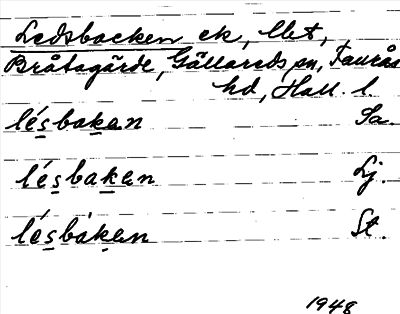 Ledsbacken ck, lbt,
Bråtagärde, Gällareds sn, Faurås
hd, Hall. l.
lésbakan Sa.
lésbakan Lj.
lésbakan St.
1948